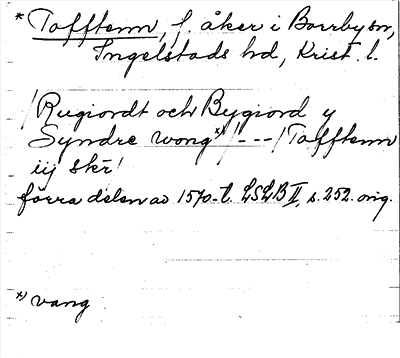 * Tofftenn, f. åker i Borrby sn,
Ingelstads hd, Krist. l.
/Rugiordt och Bygiord y
Syndre wong*)/---/Tofftenn
iij skr/
förra delen av 1570-t. LSLB II, s. 252. orig.
*) vang